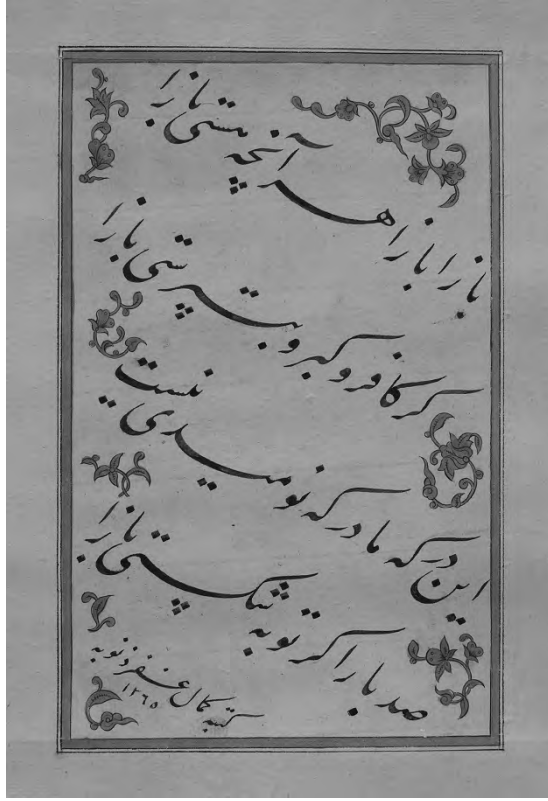 باز آ باز آ هر آنچه هستی باز آ
گر کافر و گبر و بت پرستی باز آ
این درگه ما درگه نومیدی نیست
صد بار اگر توبه شکستی باز آ
کتبه کمال غفر ذنوبه
۱۲۶۵